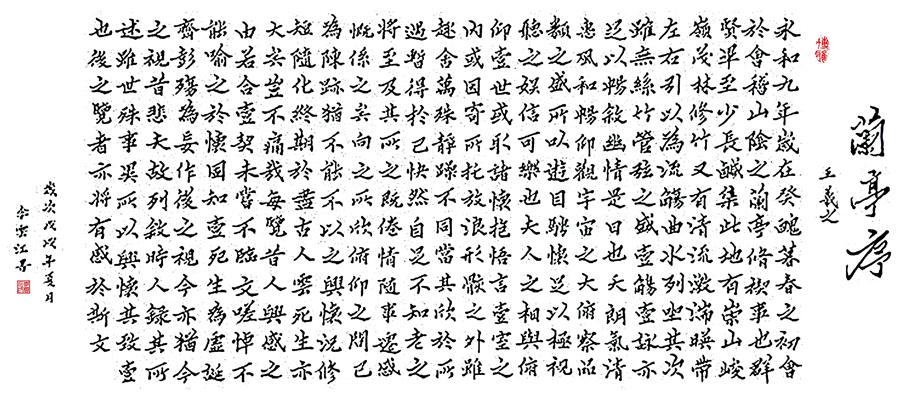 蘭亭序
王羲之
永和九年歲在癸醜暮春之初會
於會稽山陰之蘭亭脩禊事也群
賢畢至少長鹹集此地有崇山峻
嶺茂林修竹又有清流激湍暎帶
左右引以為流觴曲水列坐其次
雖無絲竹管弦之盛壹觴壹詠亦
足以暢敘幽情是日也天朗氣清
惠風和暢仰觀宇宙之大俯察品
類之盛所以遊目騁懷足以極視
聽之娛信可樂也夫人之相與俯
仰壹世或取諸懷抱悟言壹室之
內或因寄所托放浪形骸之外雖
趣舍萬殊靜躁不同當其欣於所
遇暫得於己快然自足不知老之
將至及其所之既倦情隨事遷感
慨係之矣向之所欣俯仰之間已
為陳跡猶不能不以之興懷況修
短隨化終期於盡古人雲死生亦
大矣豈不痛哉每覽昔人興感之
由若合壹契未嘗不臨文嗟悼不
能喻之於懷固知壹死生為虛誕
齊彭殤為妄作後之視今亦猶今
之視昔悲夫故列敘時人錄其所
述雖世殊事異所以興懷其致壹
也後之覽者亦將有感於斯文
歲次戊戌年夏月
余雲江書